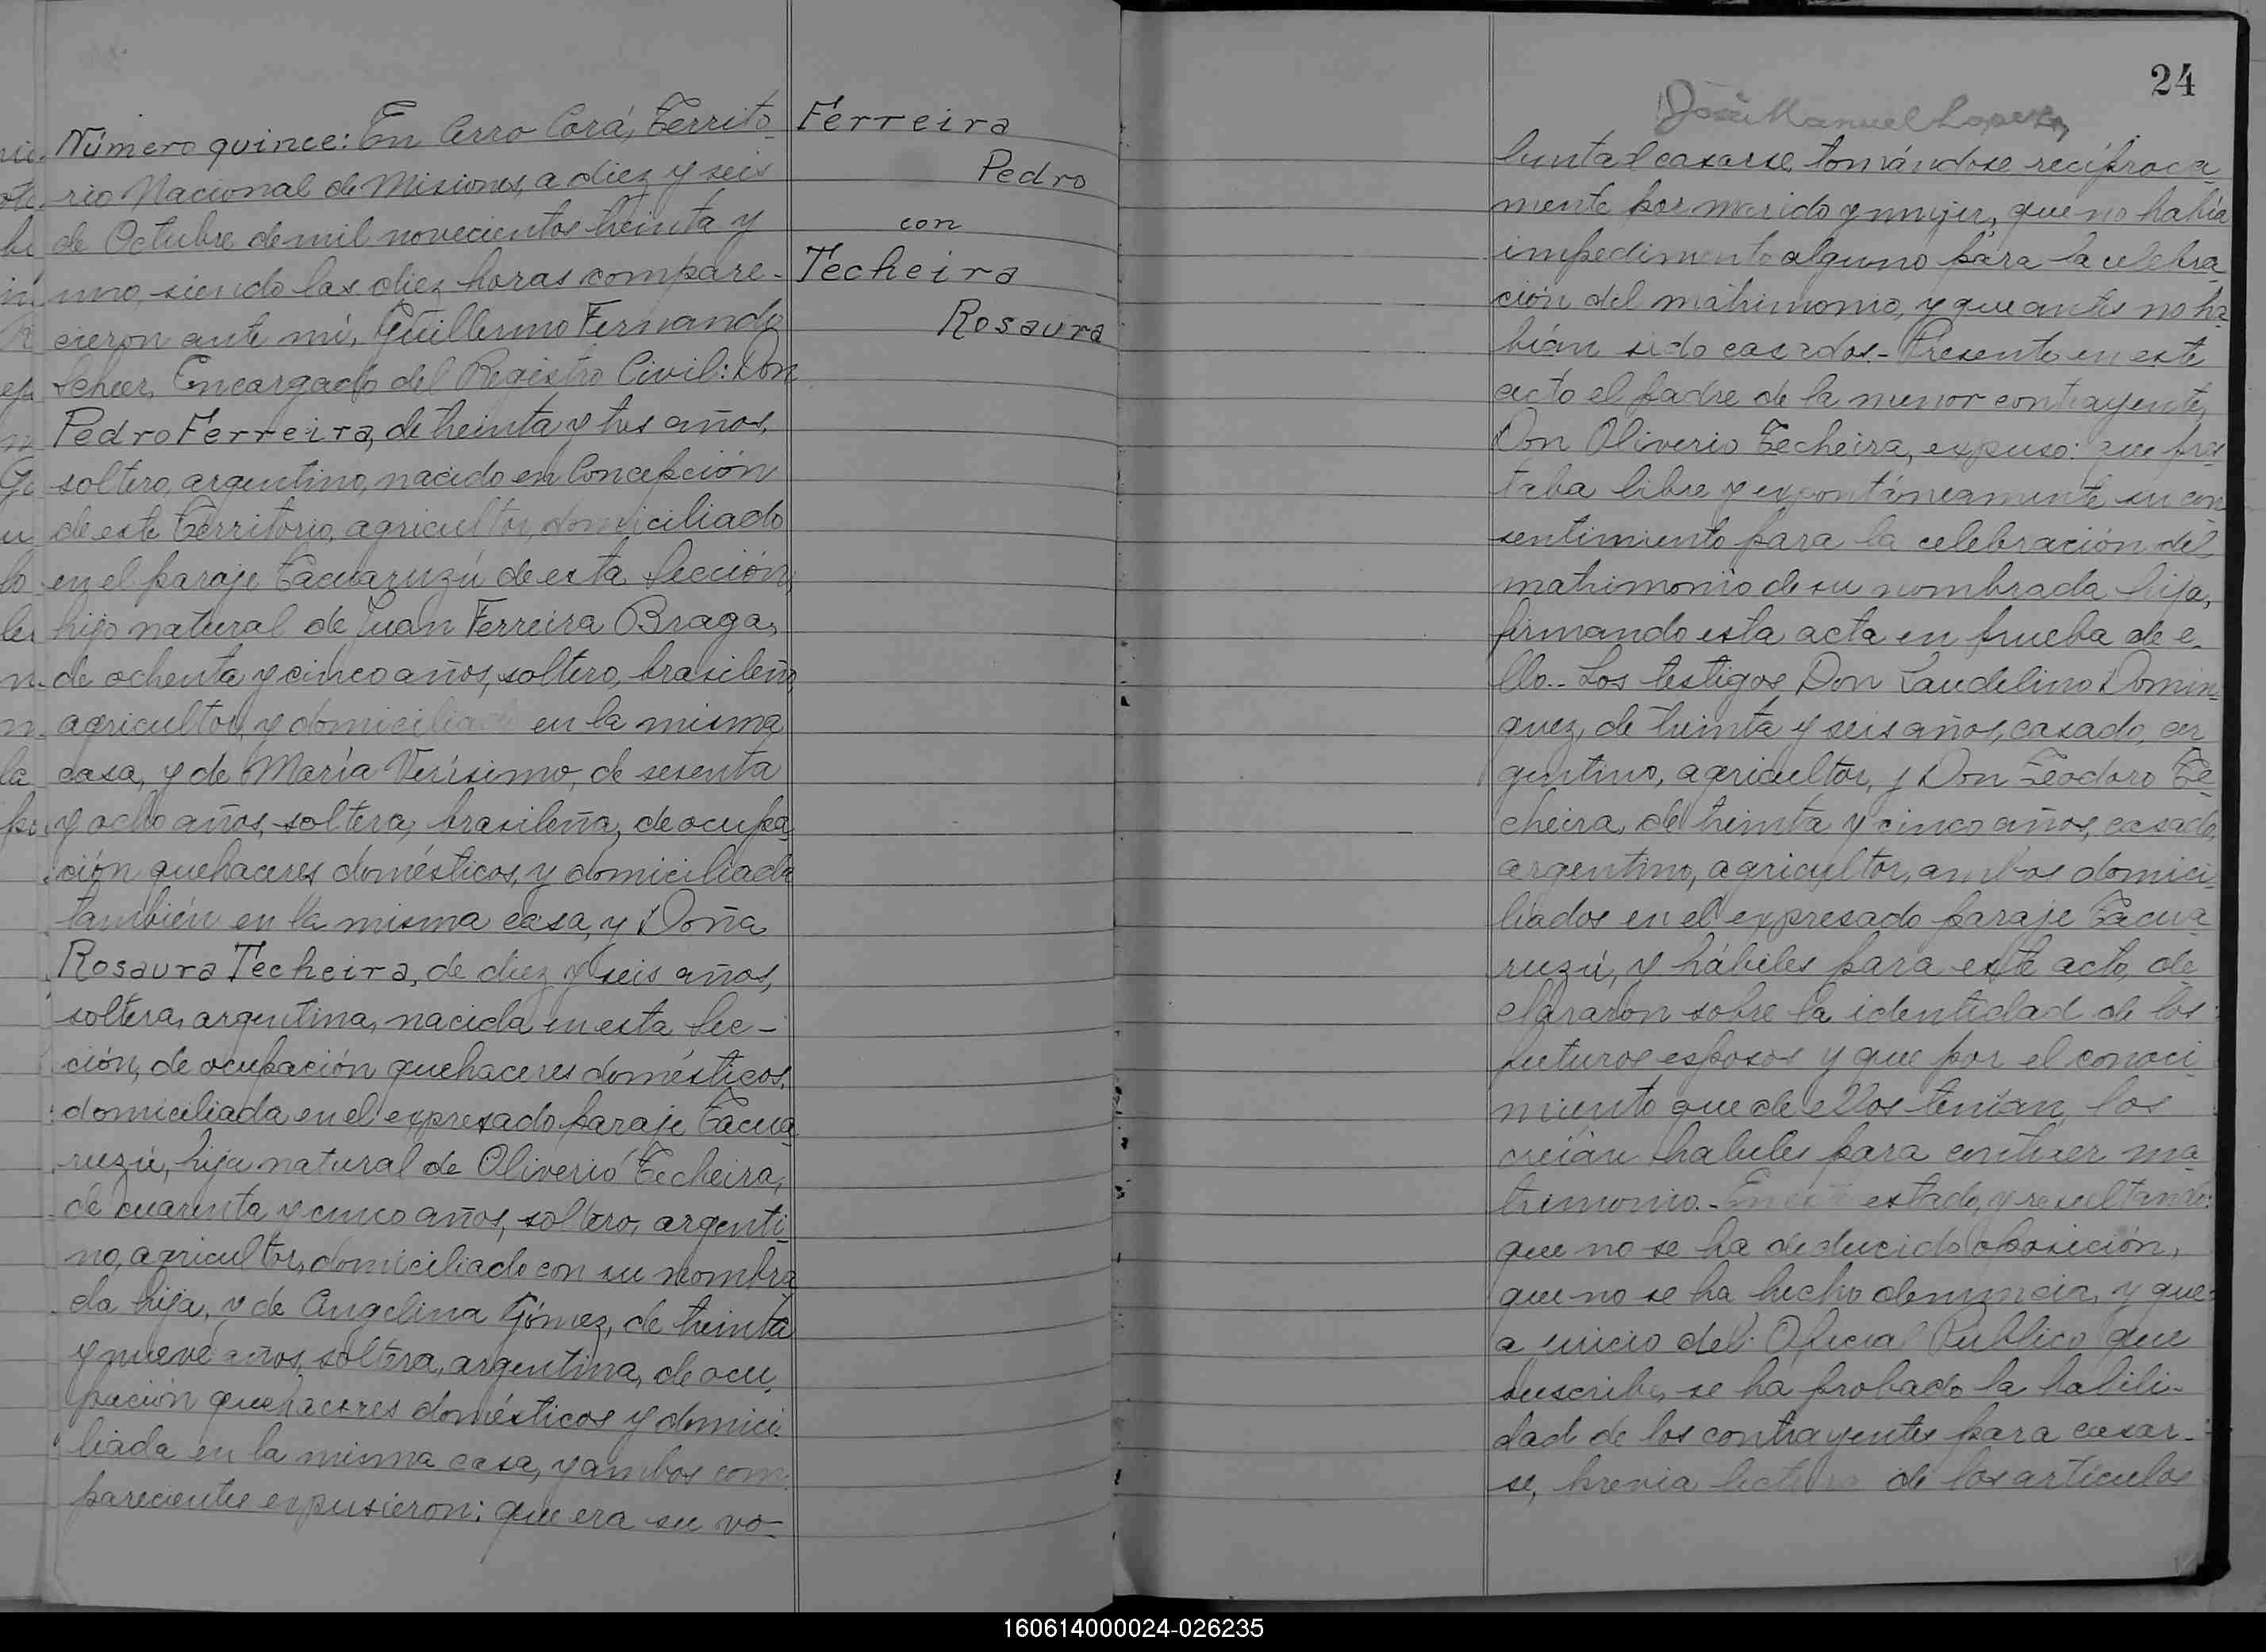 Número quince: En Cerro Corá, Territo-
rio Nacional de Misiones, a diez y seis
de Octubre de mil novecientos treinta y
uno, siendo las diez horas compare-
cieron ante mí, Guillermo Fernando
Scheer, Encargado del Registro Civil: Don
Pedro Ferreira, de treinta y tres años,
soltero, argentino, nacido en Concepción
de este Territorio, agricultor, domiciliado
en el paraje Tacuaruzú de esta Sección,
hijo natural de Juan Ferreira Braga,
de ochenta y cinco años, soltero, brasileño,
agricultor, y domiciliado en la misma
casa, y de María Verísimo, de sesenta
y ocho años, soltera, brasileña, de ocupa-
ción quehaceres domésticos, y domiciliada
también en la misma casa, y Doña
Rosaura Techeira, de diez y seis años,
soltera, argentina, nacida en esta Sec-
ción, de ocupación quehaceres domésticos,
domiciliada en el expresado paraje Tacua-
ruzú, hija natural de Oliverio Techeira,
de cuarenta y cinco años, soltero, argenti-
no, agricultor, domiciliado con su nombra-
da hija, y de Angelina Gómez, de treinta
y nueve años, soltera, argentina, de ocu-
pación quehaceres domésticos y domici-
liada en la misma casa, y ambos com-
parecientes expusieron: que era su vo-
Ferreira
Pedro
con
Techeira
Rosaura
24
José Manuel Lopez
luntad casarse, tomándose recíproca-
mente por marido y mujer, que no había
impedimento alguno para la celebra-
ción del matrimonio, y que antes no ha-
bían sido casados.- Presente en este
acto el padre de la menor contrayente,
Don Oliverio Techeira, expuso: que pres-
taba libre y expontáneamente su con-
sentimiento para la celebración del
matrimonio de su nombrada hija,
firmando esta acta en prueba de e-
llo.- Los testigos Don Laudelino Domin-
guez, de treinta y seis años, casado, ar-
gentino, agricultor, y Don Teodoro Te-
cheira, de treinta y cinco años, casado,
argentino, agricultor, ambos domici-
liados en el expresado paraje Tacua-
ruzú, y hábiles para este acto, de-
clararon sobre la identidad de los
futuros esposos y que por el conoci-
miento que de ellos tenían, los
creían habiles para contraer ma-
trimonio.- En este estado, y resultando:
que no se ha deducido oposición,
que no se ha hecho denuncia, y que
a juicio del Oficial Público que
suscribe, se ha probado la habili-
dad de los contrayentes para casar-
se, previa lectura de los artículos
160614000024-026235